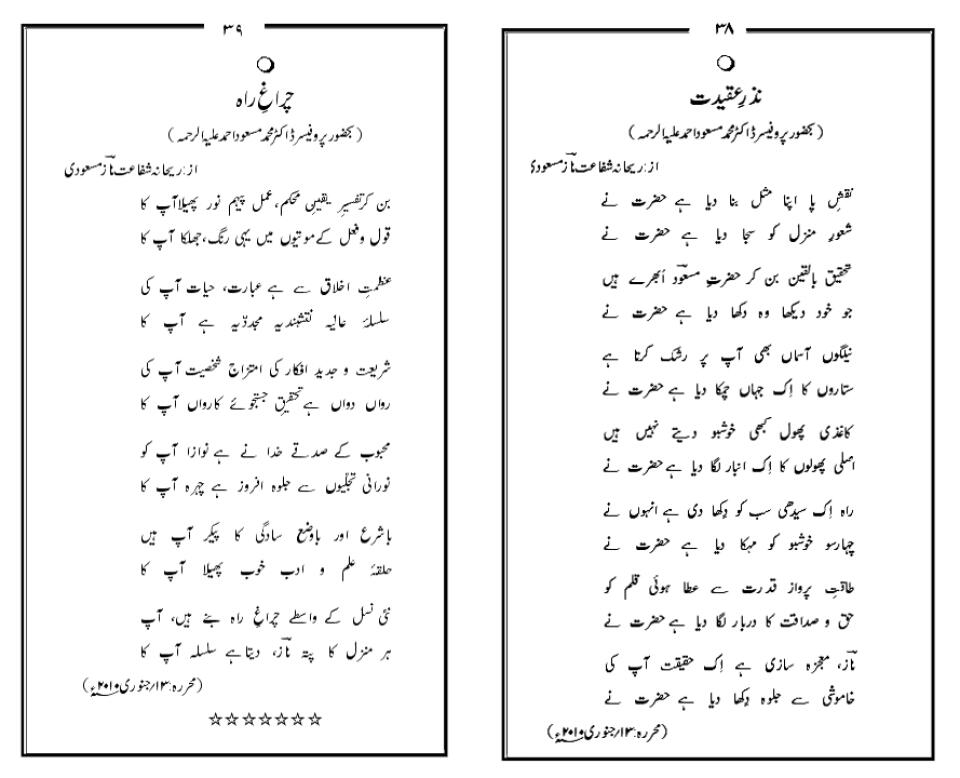 ۳۸
نذرِ عقیدت
(بحضور پروفیسر ڈاکٹر محمد مسعود احمد علیہ الرحمہ)
از: ریحانہ شفاعت نازؔ مسعودی
نقشِ پا اپنا مثل بنا دیا ہے حضرت نے
شعورِ منزل کو سجا دیا ہے حضرت نے
تحقیق بالقین بن کر حضرتِ مسعودؔ اُبھرے ہیں
جو خود دیکھا وہ دکھا دیا ہے حضرت نے
نیلگوں آسماں بھی آپ پر رشک کرتا ہے
ستاروں کا اِک جہاں چمکا دیا ہے حضرت نے
کاغذی پھول کبھی خوشبو دیتے نہیں ہیں
اصلی پھولوں کا اِک انبار لگا دیا ہے حضرت نے
راہ اِک سیدھی سب کو دِکھا دی ہے انہوں نے
چہارسو خوشبو کو مہکا دیا ہے حضرت نے
طاقتِ پرواز قدرت سے عطا ہوئی قلم کو
حق و صداقت کا دربار لگا دیا ہے حضرت نے
نازؔ، معجزہ سازی ہے اِک حقیقت آپ کی
خاموشی سے جلوہ دِکھا دیا ہے حضرت نے
(محررہ: ۱۳/جنوری ۲۰۱۰ء)
۳۹
چراغِ راہ
(بحضور پروفیسر ڈاکٹر محمد مسعود احمد علیہ الرحمہ)
از: ریحانہ شفاعت نازؔ مسعودی
بن کر تفسیرِ یقینِ محکم، عمل پیہم نور پھیلا آپ کا
قول و فعل کے موتیوں میں یہی رنگ، جھلکا آپ کا
عظمتِ اخلاق سے ہے عبارت، حیات آپ کی
سلسلۂ عالیہ نقشبندیہ مجددّیہ ہے آپ کا
شریعت و جدید افکار کی امتزاج شخصیت آپ کی
رواں دواں ہے تحقیقِ جستجوئے کارواں آپ کا
محبوب کے صدقے خدا نے ہے نوازا آپ کو
نورانی تجلّیوں سے جلوہ افروز ہے چہرہ آپ کا
باشرع اور باوضع سادگی کا پیکر آپ ہیں
حلقۂ علم و ادب خوب پھیلا آپ کا
نئی نسل کے واسطے چراغِ راہ بنے ہیں، آپ
ہر منزل کا پتہ نازؔ، دیتا ہے سلسلہ آپ کا
(محررہ: ۱۳/جنوری ۲۰۱۰ء)
☆☆☆☆☆☆☆